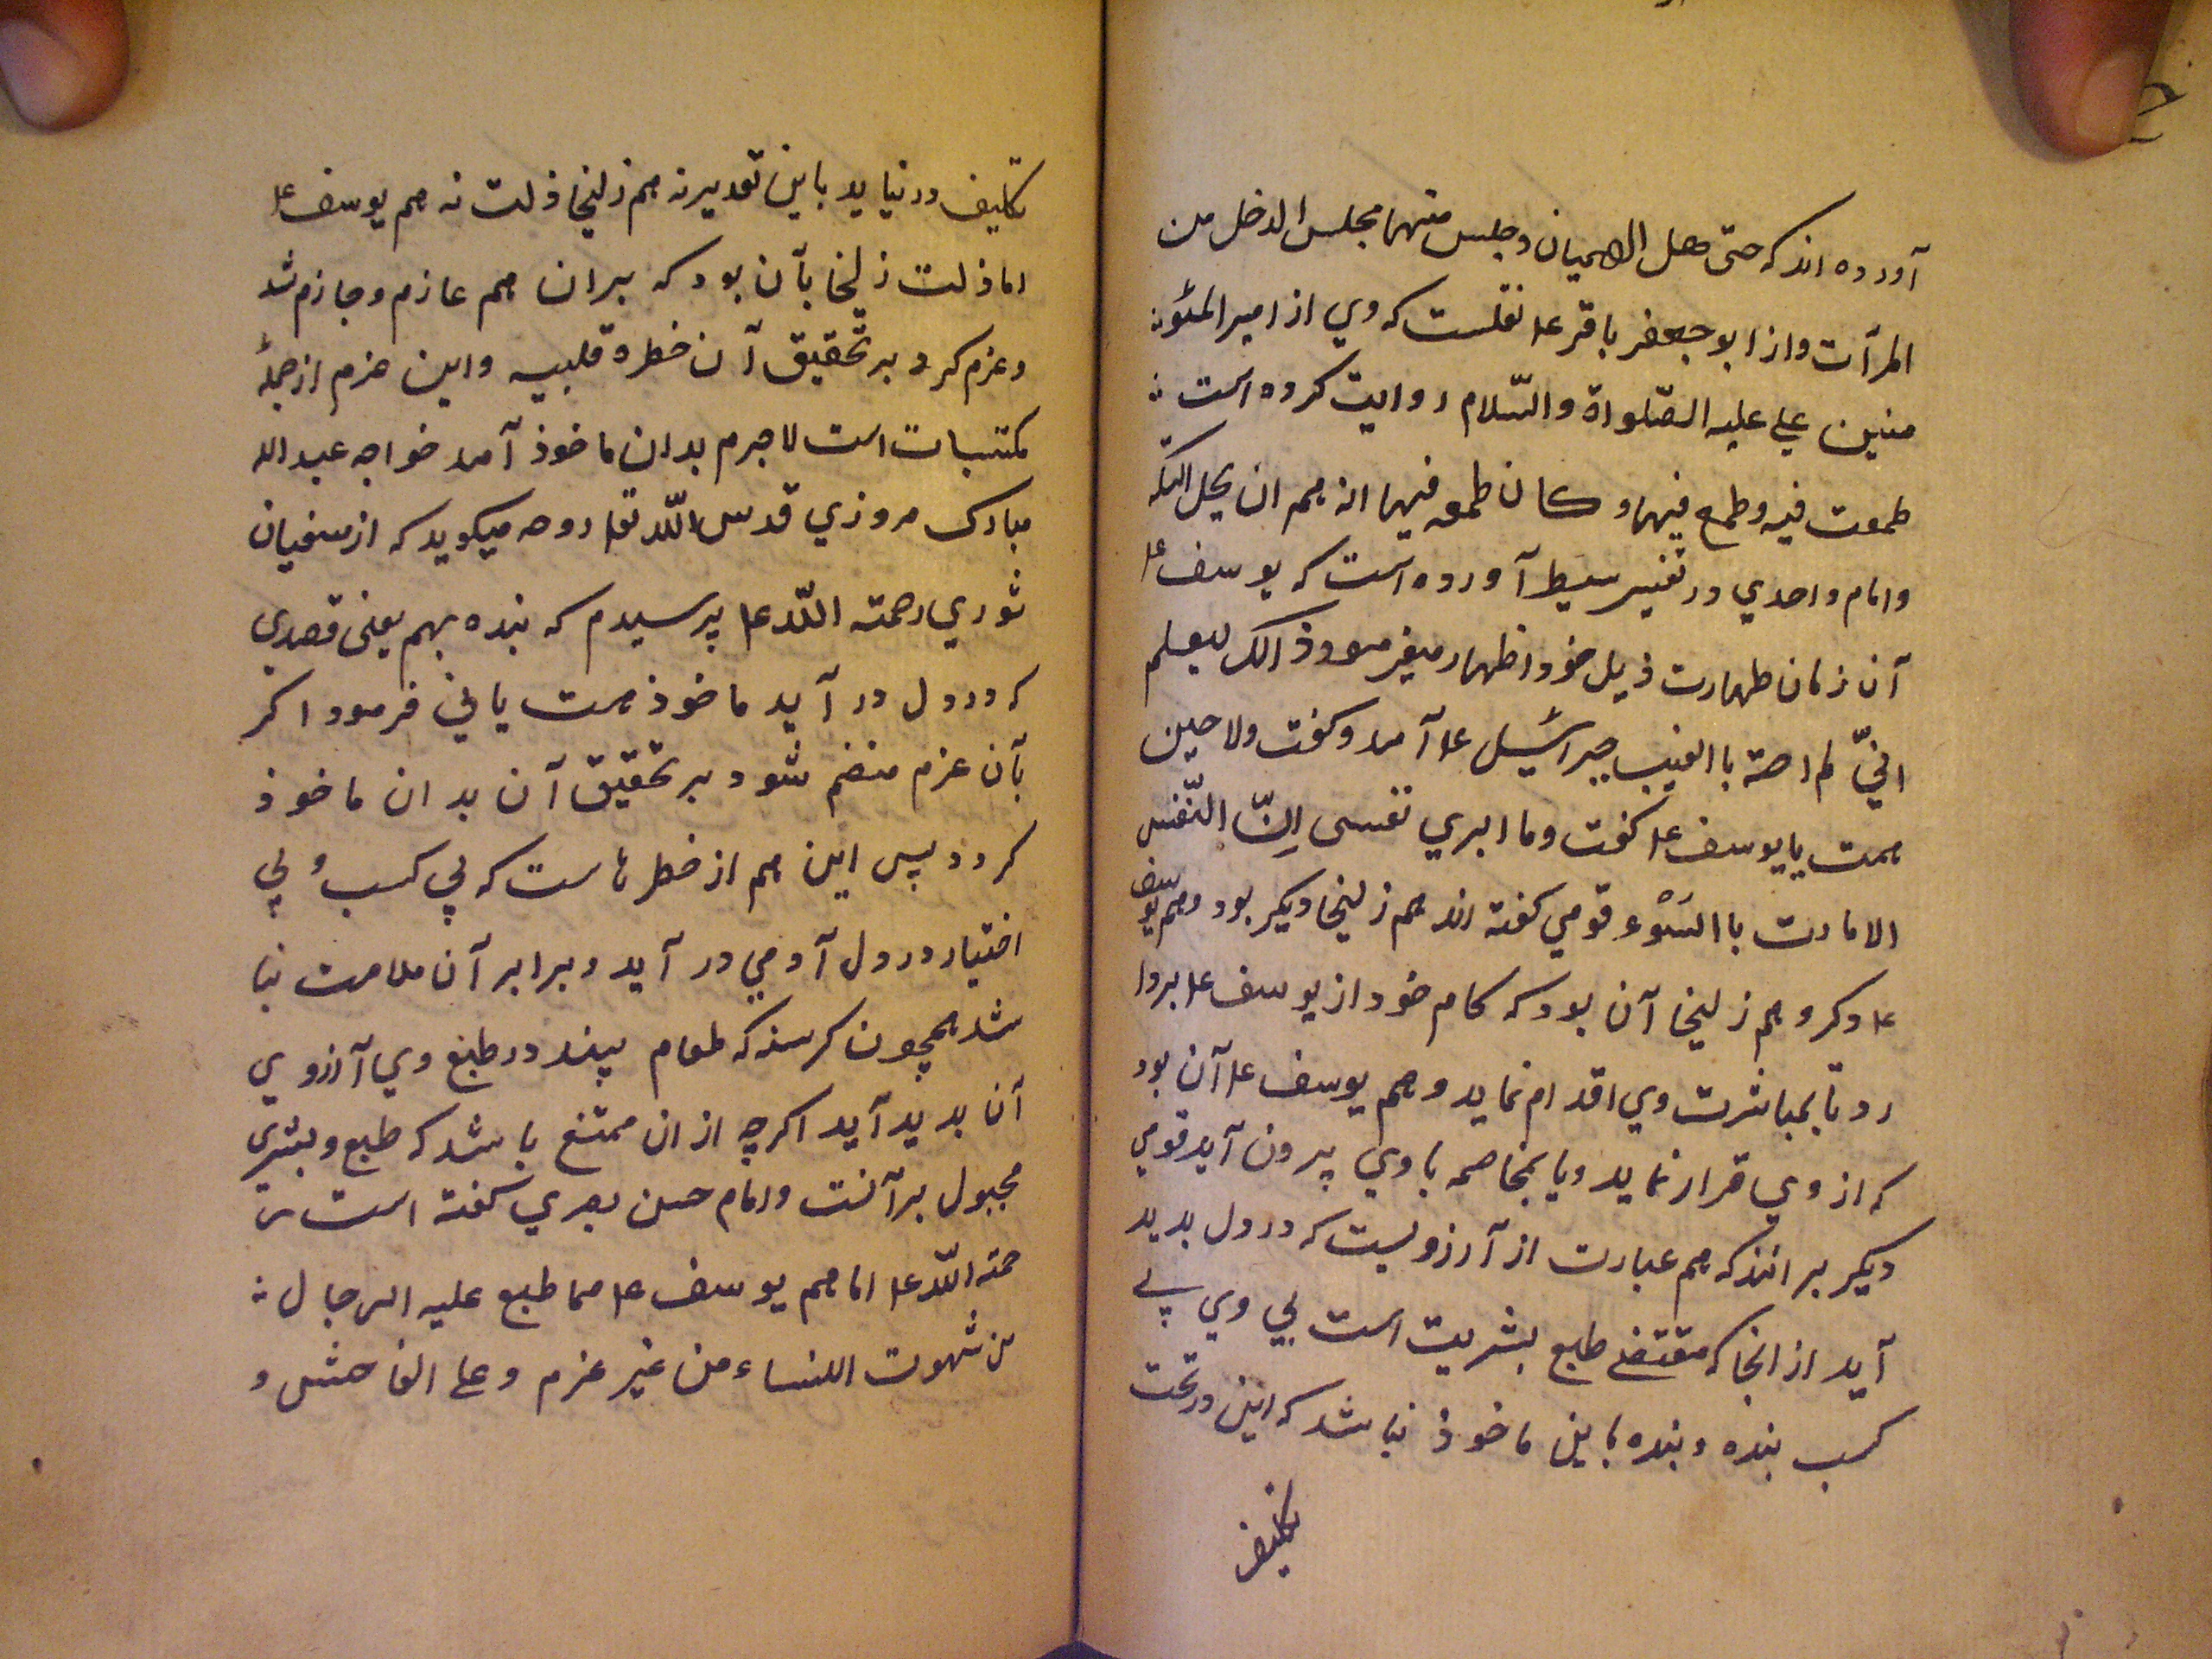 آورده اند که حتی حل الهمیان وجلس منهما مجلس الدخل من
المرآت واز ابو جعفر باقر ع نقلست که وي از امیر المئو:
منین علي علیه الصّلواة والسّلام روایت کرده است :
طمعت فیه وطمع فیها و کان طمعه فیها انه هم ان یحل التکه
وامام واحدي در تفسیر بسیط آورده است که یوسف ع
آن زمان طهارت ذیل خود اظهار میفرمود ذالک لیعلم
انيّ لم اخنه با الغیب جبرائیل ع آمد وکفت ولا حین
هممت یا یوسف ع کفت وما ابري نفسی اِنّ النّفس
الامارت با السَوْء قومي کفته اند هم زلیخا دیکر بود وهم یوسف
ع دکر وهم زلیخا آن بود که کام خود از یوسف ع بردا
رد تا بمباشرت وي اقدام نماید وهم یوسف ع آن بود
که از وي فرار نماید ویا بمخاصمه با وي بیرون آید قومي
دیکر بر انند که هم عبارت از آرزوییست که در دل بدید
آید از انجا که مقتضي طبع بشریت است بي وي بے
کسب بنده وبنده باین ماخوذ نباشد که این در تحت
تکلیف
تکلیف در نیاید باین تقدیر نه هم زلیخا ذلت نه هم یوسف ع
اما ذلت زلیخا بآن بود که بران هم عازم وجازم شد
وعزم کرد بر تحقیق آن خطره قلبیه واین عزم از جملهٔ
مکتسبات است لاجرم بدان ماخوذ آمد خواجه عبد الله
مبارک مروزي قدس اللّه تعا روحه میکوید که از سفیان
ثوري رحمته اللّه ع پرسیدم که بنده بهم یعنی قصدي
که در دل در آید ماخوذ هست یا نی فرمود اکر
بآن عزم منضم شود بر تحقیق آن بدان ماخوذ
کردد پس این هم از خطرهاست که بي کسب و بي
اختیار در دل آدمي در آید وبرابر آن ملامت نبا
شد همچون کرسنه که طعام بیند در طبع وي آرزوي
آن بدید آید اکرچه از ان ممتنع باشد که طبع وبشري
مجبول بر آنست وامام حسن بصري کفته است ر
حمته اللّه ع اما هم یوسف ع مما طبع علیه الرجال :
من شهوت اللنساء من غیر عزم وعلي الفاحش و